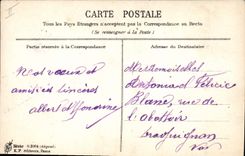 CARTE POSTALE
Tous les Pays Étrangers n'acceptent pas la Correspondance au Recto
(Se renseigner à la Poste)
Partie réservée à la Correspondance
Adresse du Destinataire
Nos vœux et
amitiés sincères
Albert Honorine
Mesdemoiselles
Antonia et Félicie
Blanc, rue de
l'abattoir
Draguignan
Var